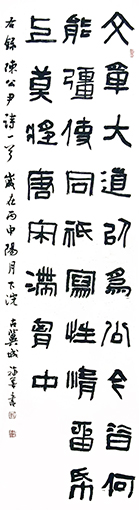 文章大道以爲公今昔何
能彊使同祇寫性情畱帋
上莫將唐宋滯胷中
右錄陳公尹詩一首 歲在丙申陽月下浣 古冀成